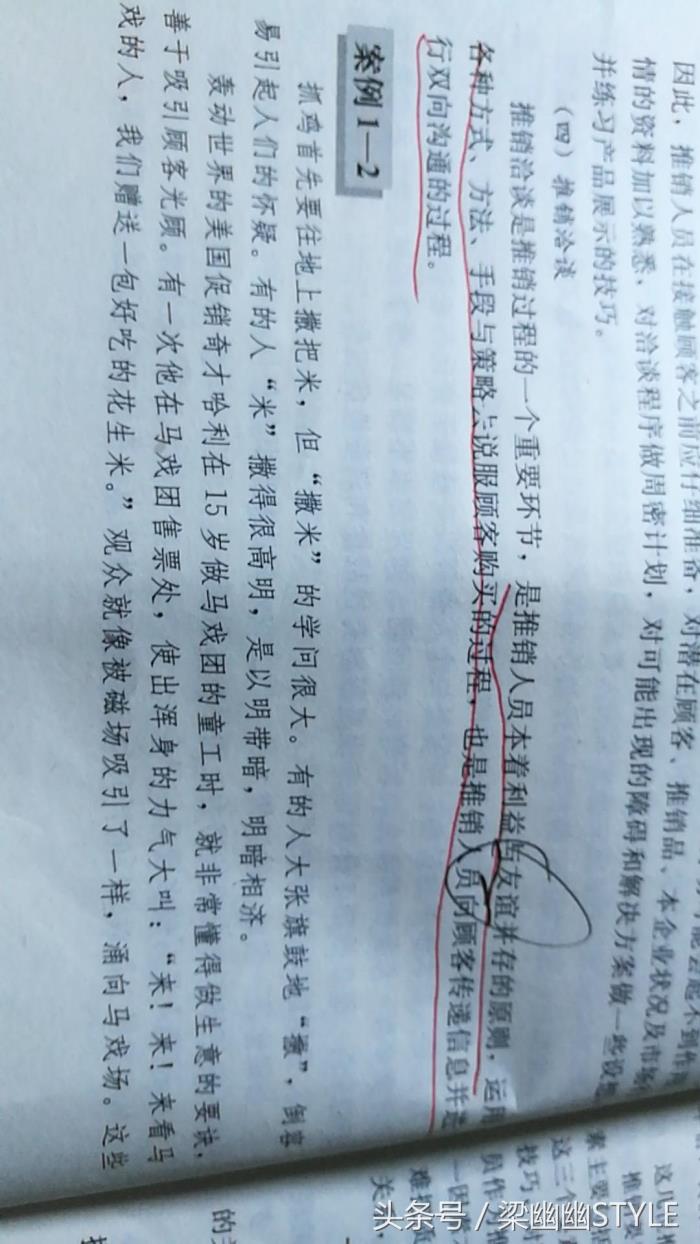 因此，推销人员在接触顾客之前应仔细准备，对潜在顾客、推销品、本企业状况及市场
情的资料加以熟悉、对洽谈程序做周密计划，对可能出现的障碍和解决方案做一些设想
并练习产品展示的技巧。
（四）推销洽谈
推销洽谈是推销过程的一个重要环节，是推销人员本着利益与友谊并存的原则，运用
各种方式、方法、手段与策略去说服顾客购买的过程，也是推销人员向顾客传递信息并进
行双向沟通的过程。
案例1—2
抓鸡首先要往地上撒把米，但“撒米”的学问很大。有的人大张旗鼓地“撒”，倒容
易引起人们的怀疑。有的人“米”撒得很高明，是以明带暗，明暗相济。
轰动世界的美国促销奇才哈利在15岁做马戏团的童工时，就非常懂得做生意的要诀，
善于吸引顾客光顾。有一次他在马戏团售票处，使出浑身的力气大叫：“来！来！来看马
戏的人，我们赠送一包好吃的花生米。”观众就像被磁场吸引了一样，涌向马戏场。这些
头条号／梁幽幽STYLE